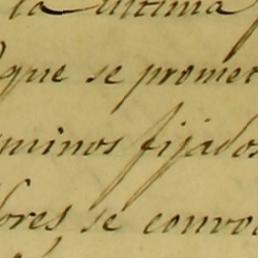 la ultima
que se promet
minos fijados
ores se convoc